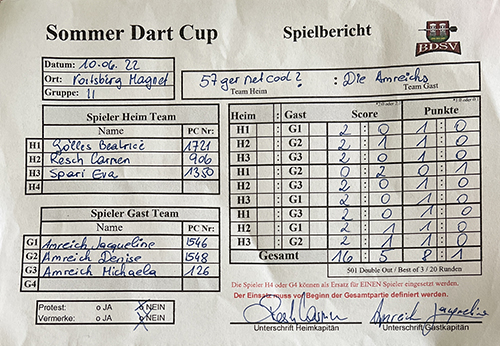 Sommer Dart Cup Spielbericht
BDSV
Datum: 10.06.22
Ort: Magnet
Gruppe: 11
57ger net cool? : Die Amreichs
Team Heim Team Gast
Spieler Heim Team
Name PC Nr:
H1 Gölles Beatrice 1721
H2 Resch Carmen 906
H3 Spari Eva 1350
H4
Spieler Gast Team
Name PC Nr:
G1 Amreich Jacqueline 1546
G2 Amreich Denise 1548
G3 Amreich Michaela 126
G4
Protest: o JA o NEIN
Vermerke: o JA o NEIN
Heim : Gast Score Punkte
H1 G1 2 : 0 1 : 0
H2 G2 2 : 1 1 : 0
H3 G3 2 : 0 1 : 0
H1 G2 0 : 2 0 : 1
H2 G3 2 : 0 1 : 0
H3 G1 2 : 0 1 : 0
H1 G3 2 : 0 1 : 0
H2 G1 2 : 1 1 : 0
H3 G2 2 : 1 1 : 0
Gesamt 16 : 5 8 : 1
501 Double Out / Best of 3 / 20 Runden
Die Spieler H4 oder G4 können als Ersatz für EINEN Spieler eingesetzt werden.
Der Einsatz muss vor Beginn der Gesamtpartie definiert werden.
Resch Carmen Amreich Jacqueline
Unterschrift Heimkapitän Unterschrift Gastkapitän